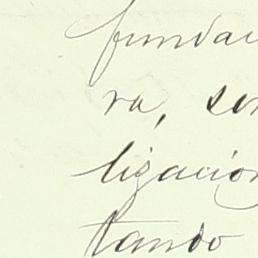 fundac
ra, ser
ligación
tando